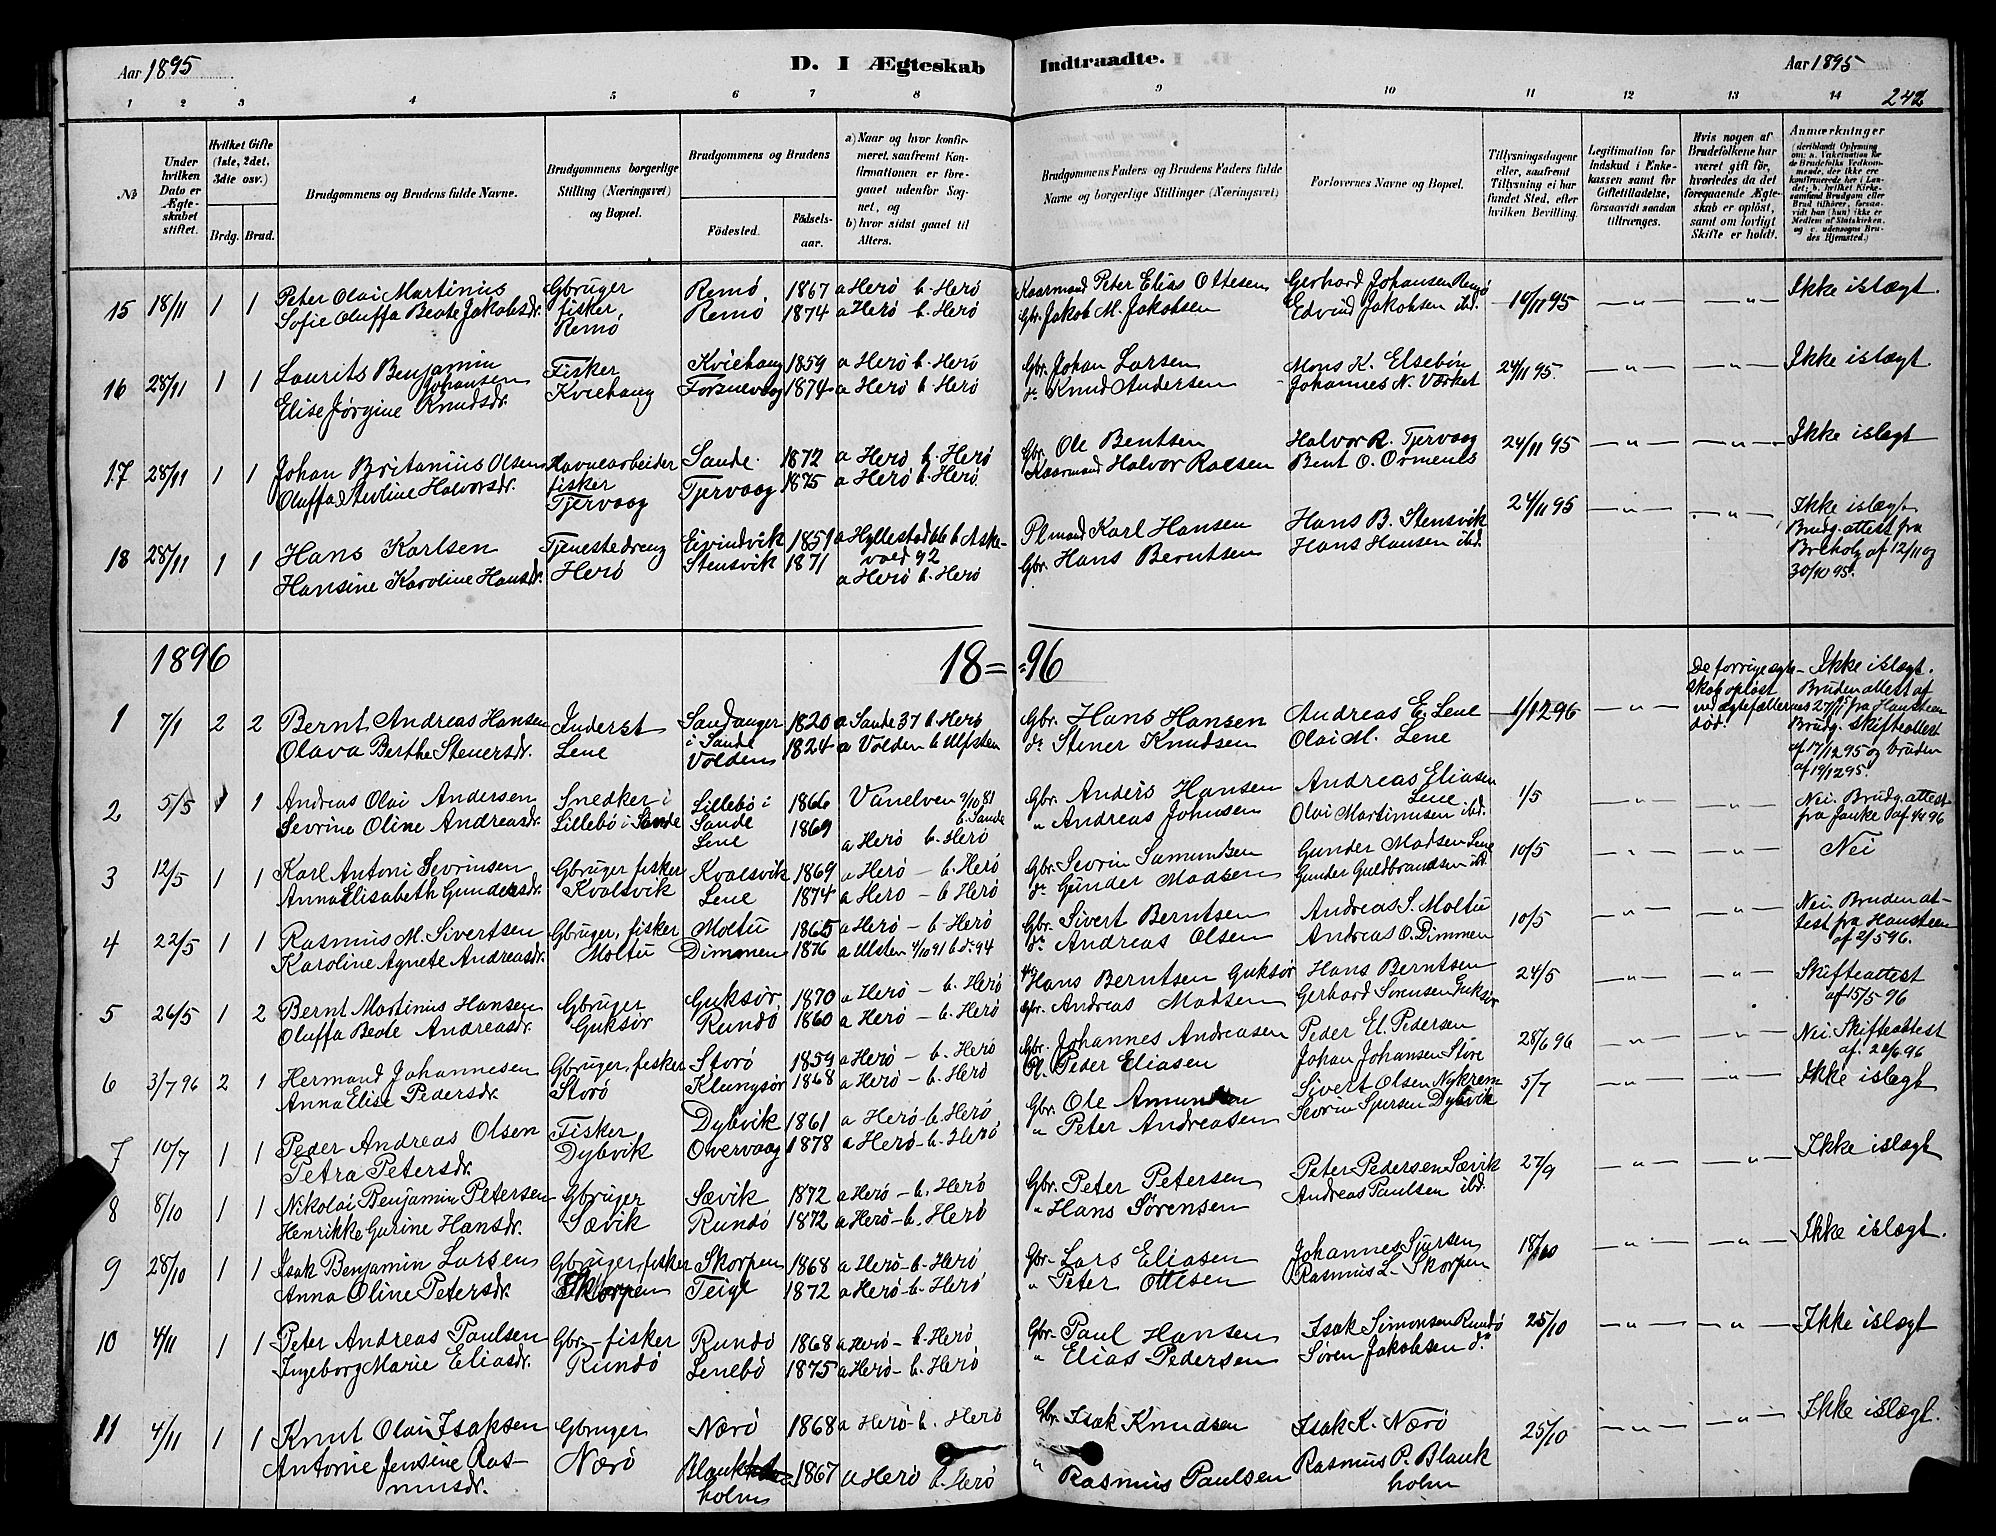 Aar 1895
D. I Ægteskab Indtraadte.
Aar 1895
1 2 3 4 5 6 7 8 9 10 11 12 13 14
242
№
Under hvilken Dato er Ægteskabet stiftet.
Hvilket Gifte (1ste, 2det, 3dte osv.)
Brdg. Brud.
Brudgommens og Brudens fulde Navne.
Brudgommens borgerlige Stilling (Næringsvei) og Bopæl.
Brudgommens og Brudens
Fødested. Fødselsaar.
a) Naar og hvor konfirmeret, saafremt Konfirmationen er foregaaet udenfor Sognet, og
b) hvor sidst gaaet til Alters.
Brudgommens Faders og Brudens Faders fulde Navne og borgerlige Stillinger (Næringsvei)
Forlovernes Navne og Bopæl.
Tillysningsdagene eller, saafremt Tillysning ei har fundet Sted, efter hvilken Bevilling.
Legitimation for Indskud i Enkekassen samt for Giftetilladelse, forsaavidt saadan tiltrænges.
Hvis nogen af Brudefolkene har været gift før, hvorledes da det foregaaende Ægteskab er opløst, samt om lovligt Skifte er holdt.
Anmærkninger (deriblandt Oplysning om: a. Vakcination for de Brudefolks Vedkommende, der ikke ere konfirmerede her i Landet; b. hvilket Kirkesamfund Brudgom eller Brud tilhører, forsaavidt han (hun) ikke er Medlem af Statskirken, og c. udensogns Brudes Hjemsted.)
15 18/11 1 1 Peter Olai Martinius Gbruger Remø 1867 a Herø b. Herø Kaarmand Peter Elias Ottesen Gerhard Johansen Remø 10/11 95 — " — — " — Ikke islægt.
Sofie Oluffa Beate Jakobsdr. fisker, Remø 1874 a Herø b. Herø Gbr. Jakob M. Jakobsen Edvind Jakobsen ibd.
Remø
16 28/11 1 1 Laurits Benjamin Fisker Kviehaug 1859 a Herø b. Herø Gbr. Johan Larsen Mons K. Elsebøn 24/11 95. — " — — " — Ikke islægt
Johansen Kviehaug Forsnevaag 1874 a Herø b. Herø do Knud Andersen Johannes N. Værket
Elise Jørgine Knudsdr.
17 28/11 1 1 Johan Britanius Olsen Havnearbeider Sande. 1872 a Herø b. Herø Gbr. Ole Bentsen Halvor R. Tjervaag 24/11 95 — " — — " — Ikke islægt
Oluffa Stevline Halvorsdr. fisker Tjervaag 1875 a Herø b. Herø. Kaarmand Halvor Raesen Bent O. Ormenes
Tjervaag
18 28/11 1 1 Hans Karlsen Tjenestedreng Eivindvik 1851 a Hyllestad 66 b Aske- Plmand Karl Hansen Hans B. Stensvik 24/11 95 — " — — " — Ikke islægt
Hansine Karoline Hansdr. Herø Stensvik 1871 vold 92 Gbr. Hans Berntsen Hans Hansen ibd.
a Herø b. Herø
Brudg. attest fra
af 12/11 og
30/10 95.
1896 18=96
1 7/1 2 2 Bernt Andreas Hansen Inderst Sandanger 1820 a Sande 37 b. Herø Gbr. Hans Hansen Andreas E. Lene 1/1 2 96 — " —
Olava Berthe Stenersdr. Lene i Sande 1824 a Volden b. Ulfsten do Stener Knudsen Olai M. Lene
Volden
De forrige ægte-
skab opløst
ved ægtefællernes
død.
Ikke islægt.
Bruden attest af
27/11 95 fra Hausteen
Brudg. skifteattest
af 17/12 95 og bruden
af 19/12 95.
2 5/5 1 1 Andreas Olai Andersen Snedker i Lillebø i 1866 Vanelven 9/10 81 Gbr. Anders Hansen Andreas Eliasen 1/5 — " — — " — Nei. Brudg. attest
Sevrine Oline Andreasdr. Lillebø i Sande Sande 1869 b. Sande " Andreas Johnsen Lene
Lene a Herø b. Herø Olai Martinusen ibd.
3 12/5 1 1 Karl Antoni Sevrinsen Gbruger fisker Kvalsvik 1869 a Herø — b. Herø Gbr. Sevrin Samundsen Gunder Madsen Lene 10/5 — " — — " — Nei
Anna Elisabeth Gundersdr. Kvalsvik Lene 1874 a Herø — b. Herø do Gunder Madsen Gunder Guldbrandsen ibd.
4 22/5 1 1 Rasmus M. Sivertsen Gbruger, fisker Moltu 1865 a Herø — b. Herø Gbr. Sivert Berntsen Andreas S. Moltu 10/5 — " — — " — Nei. Bruden at-
Karoline Agnete Andreasdr. Moltu Dimmen 1876 a Ulsten 4/10 91 b. do 94 do Andreas Olsen Andreas O. Dimmen
test fra Hausteen
af 2/5 96.
5 26/5 1 2 Bernt Martinus Hansen Gbruger Guksør 1870 a Herø — b. Herø Hans Berntsen Guksør Hans Berntsen 24/5 — " — — " — Skifteattest
Oluffa Beate Andreasdr. Guksør Rundø 1860 a Herø — b. Herø Gbr. Andreas Madsen Gerhard Sørensen Guksør
af 15/5 96
6 3/7 96 2 1 Hermand Johannesen Gbruger, fisker Storø 1859 a Herø — b. Herø Gbr. Johannes Andreasen Peder El. Pedersen 28/6 96 — " — — " — Nei Skifteattest
Anna Elise Pedersdr. Storø Klungsør 1868 a Herø — b. Herø Pl. Peder Eliasen Johan Johansen Støre
7 10/7 1 1 Peder Andreas Olsen Fisker Dybvik 1861 a Herø b. Herø Gbr. Ole Amundsen Sivert Olsen Nykrem 5/7 — " — — " — Ikke islægt
Petra Petersdr. Dybvik Overvaag 1878 a Herø — b. Herø " Peter Andreasen Sevrin Sjursen Dybvik
8 8/10 1 1 Nikolai Benjamin Petersen Gbruger Sævik 1872 a Herø — b. Herø Gbr. Peter Petersen Peter Pedersen Sævik 27/9 — " — — " — Ikke islægt
Henrikke Gurine Hansdr. Sævik Rundø 1872 a Herø — b. Herø " Hans Sørensen Andreas Paulsen ibd.
9 28/10 1 1 Isak Benjamin Larsen Gbruger, fisker Skorpen 1868 a Herø — b. Herø Gbr. Lars Eliasen Johannes Sjursen 18/10 — " — — " — Ikke islægt.
Anna Oline Petersdr. Skorpen Teige 1872 a Herø — b. Herø " Peter Ottesen Rasmus L. Skorpen
10 4/11 1 1 Peter Andreas Paulsen Gbr. — fisker Rundø 1868 a Herø — b. Herø Gbr. Paul Hansen Isak Simonsen Rundø 25/10 — " — — " — Ikke islægt
Ingeborg Marie Eliasdr. Rundø Lenebø 1875 a Herø — b. Herø " Elias Pedersen Søren Jakobsen do
11 4/11 1 1 Knut Olai Isaksen Gbruger Nærø 1868 a Herø — b. Herø Gbr. Isak Knudsen Isak K. Nærø 25/10 — " — — " — Ikke islægt.
Antonie Jensine Ras- Nærø Blank- 1867 a Herø b. Herø " Rasmus Paulsen Rasmus P. Blank
musdr. holm holm